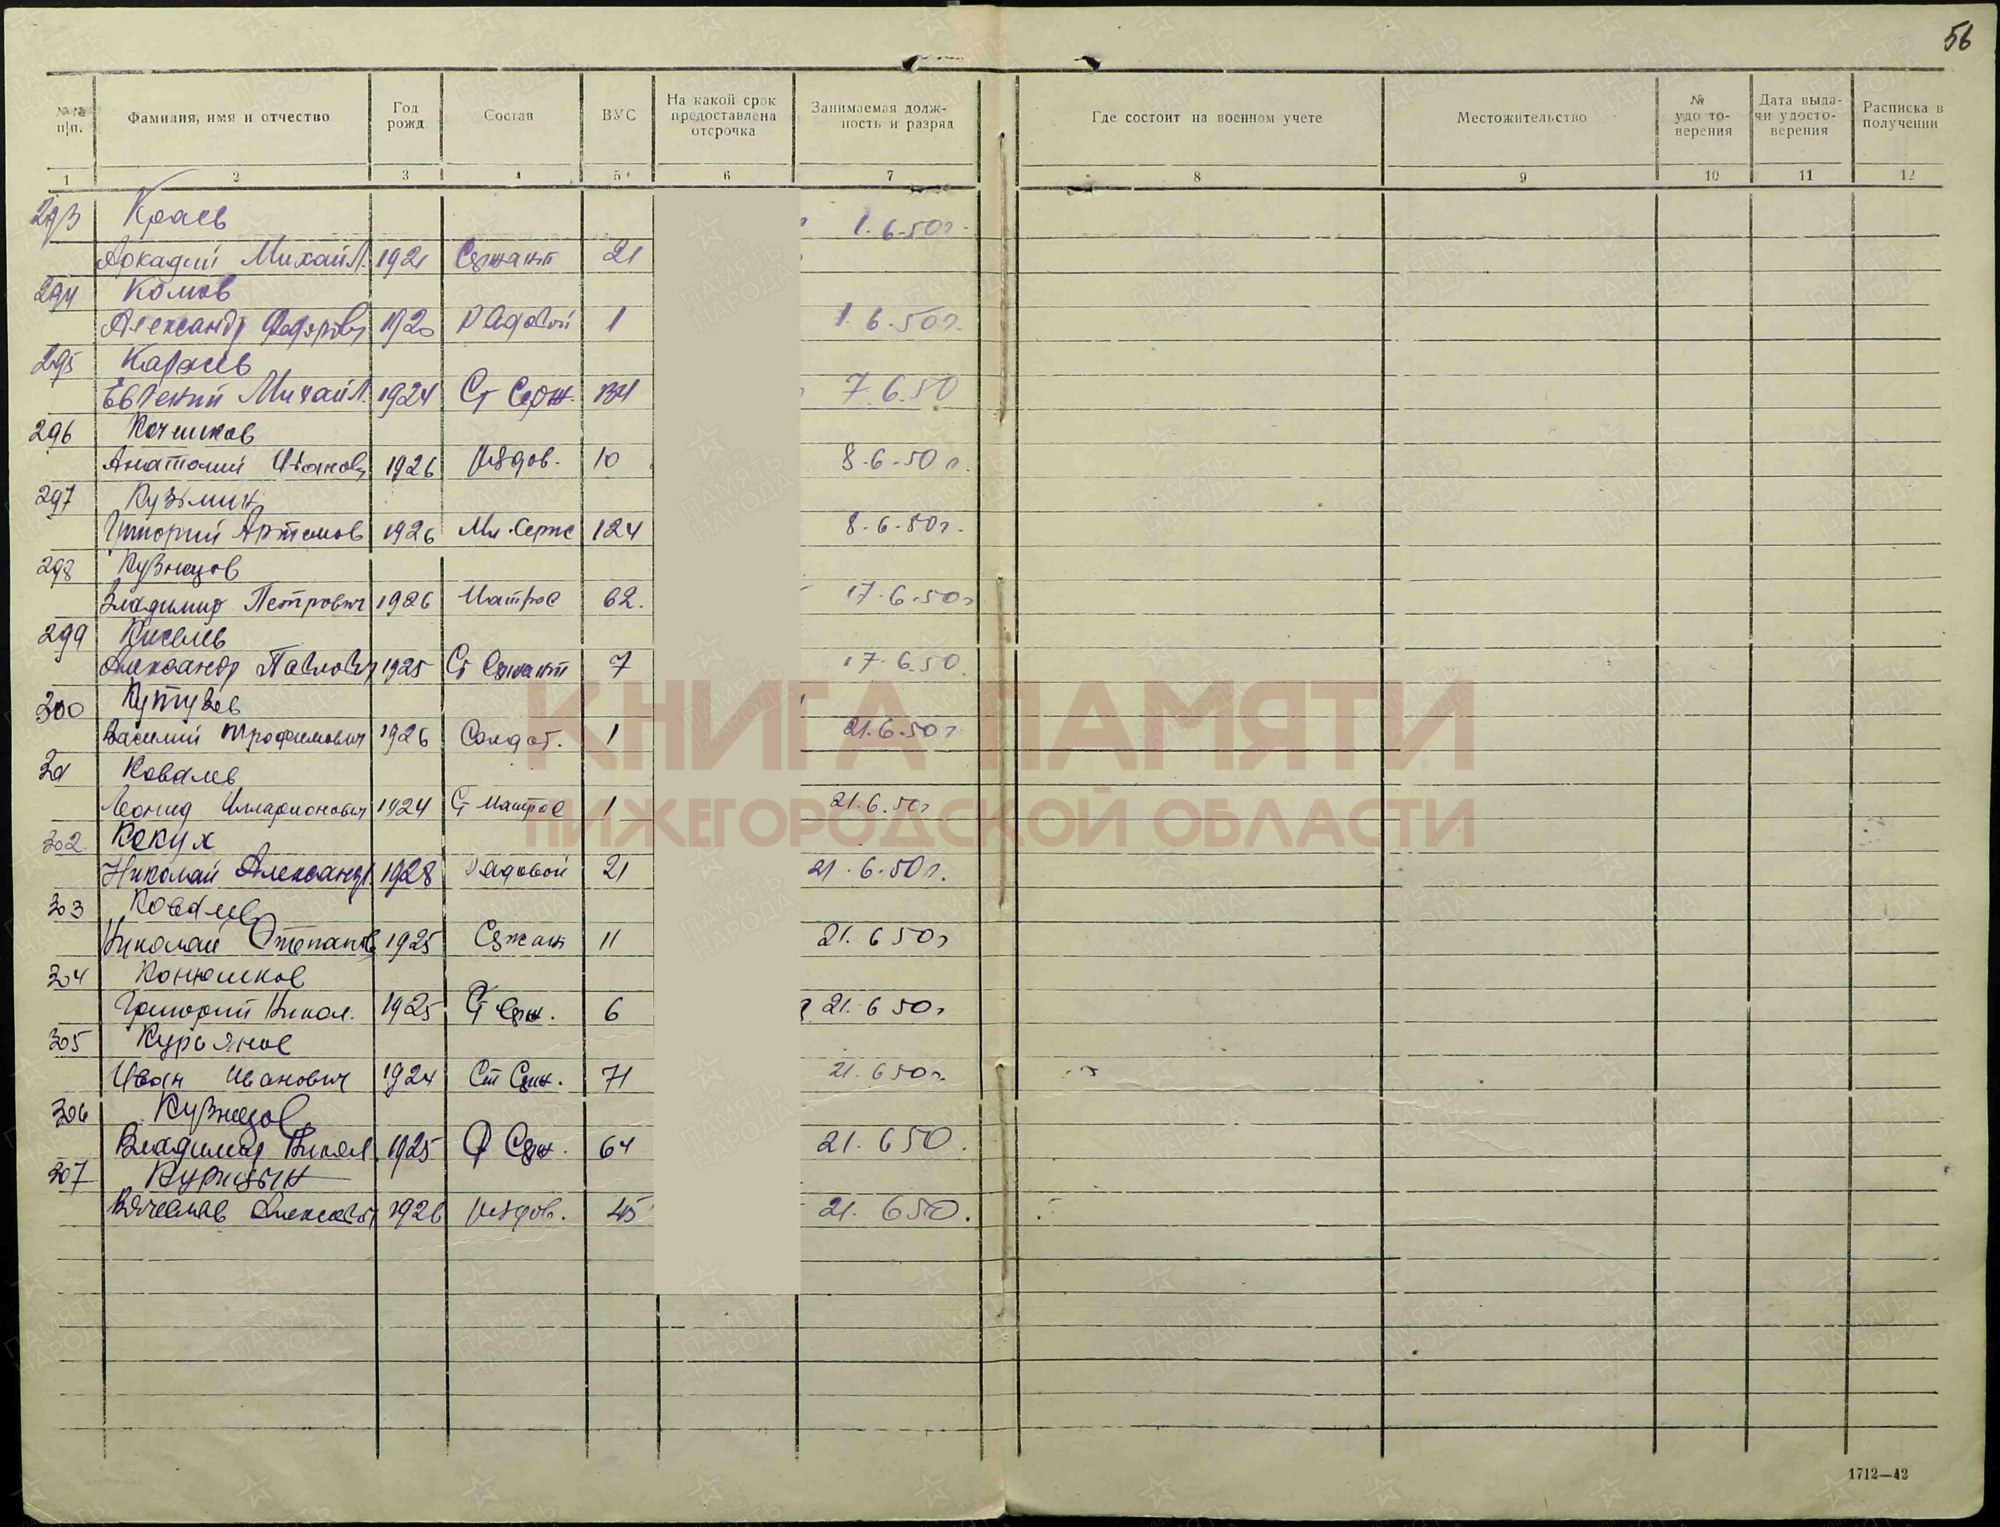 56
№№ п|п.
Фамилия, имя и отчество
Год рожд
Состав
ВУС
На какой срок предоставлена отсрочка
Занимаемая долж-ность и разряд
Где состоит на военном учете
Местожительство
№ удо то-верения
Дата выда-чи удосто-верения
Расписка в получении
1 2 3 4 5 6 7 8 9 10 11 12
293 Краев 1.6.50г.
Аркадий Михайл. 1921 Сержант 21
294 Комов
Александр Федоров 1920 Рядовой 1 1.6.50г.
295
Евгений Михайл. 1924 Ст Серж. 134 7.6.50
296 Кочешков
Анатолий Иванов 1926 Рядов. 10 8.6.50г.
297 Кузьмин
Григорий Артемов 1926 Мл.Серж 124 8.6.50г.
298 Кузнецов
Владимир Петрович 1926 Матрос 62. 17.6.50г
299 Киселев
Александр Павлович 1925 Ст Сержант 7 17.6.50
300 Кутузов
Василий Трофимович 1926 Солдат. 1 21.6.50г
301 Ковалев
Леонид Илларионович 1924 Ст Матрос 1 21.6.50г
302.
Николай Александр 1928 Рядовой 21 21.6.50г.
303 Ковалев
Николай Степанов 1925 Сержант 11 21.6 50г
304 Конюшков
Григорий Никол. 1925 Ст Серж. 6 21.6 50г
305 Курьянов
Иван Иванович 1924 Ст Серж. 71 21.6 50г.
306 Кузнецов
Владимир Никол 1925 Ст Серж. 64 21.6 50.
307
Вячеслав Алексеев 1926 Рядов. 45 21. 6 50.
КНИГА ПАМЯТИ
НИЖЕГОРОДСКОЙ ОБЛАСТИ
ПАМЯТЬ НАРОДА
1712—42